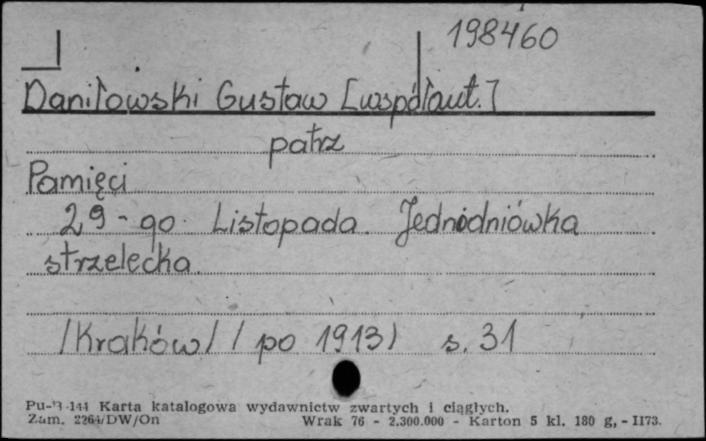 198460
Daniłowski Gustaw [współaut.]
patrz
Pamięci
29-go Listopada. Jednodniówka
strzelecka.
/Kraków/ / po 1913/ s. 31
Pu-B-144 Karta katalogowa wydawnictw zwartych i ciągłych.
Zam. 2264/DW/On Wrak 76 - 2.300.000 - Karton 5 kl. 180 g, - II73.